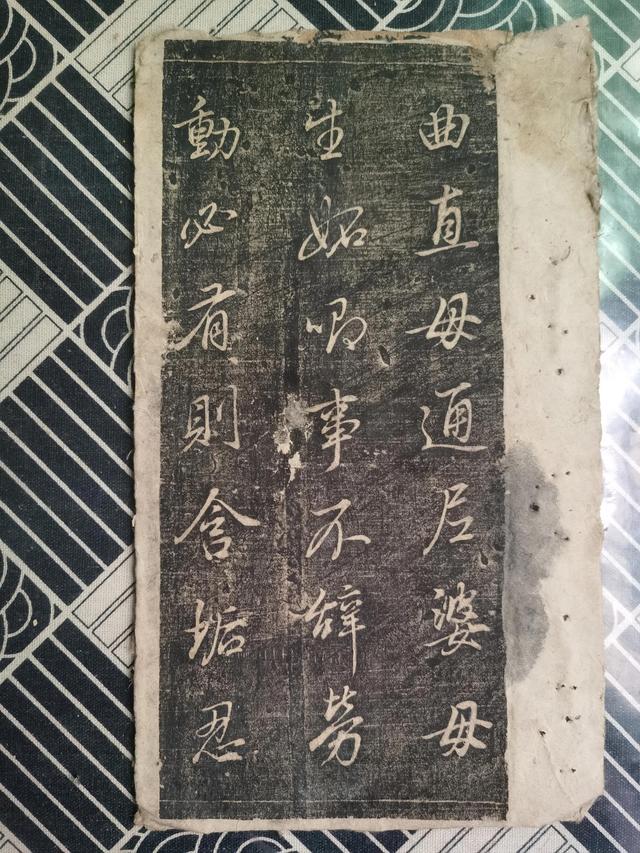 曲直毋通尼婆毋
生妬唧事不辤勞
動必有則含垢忍